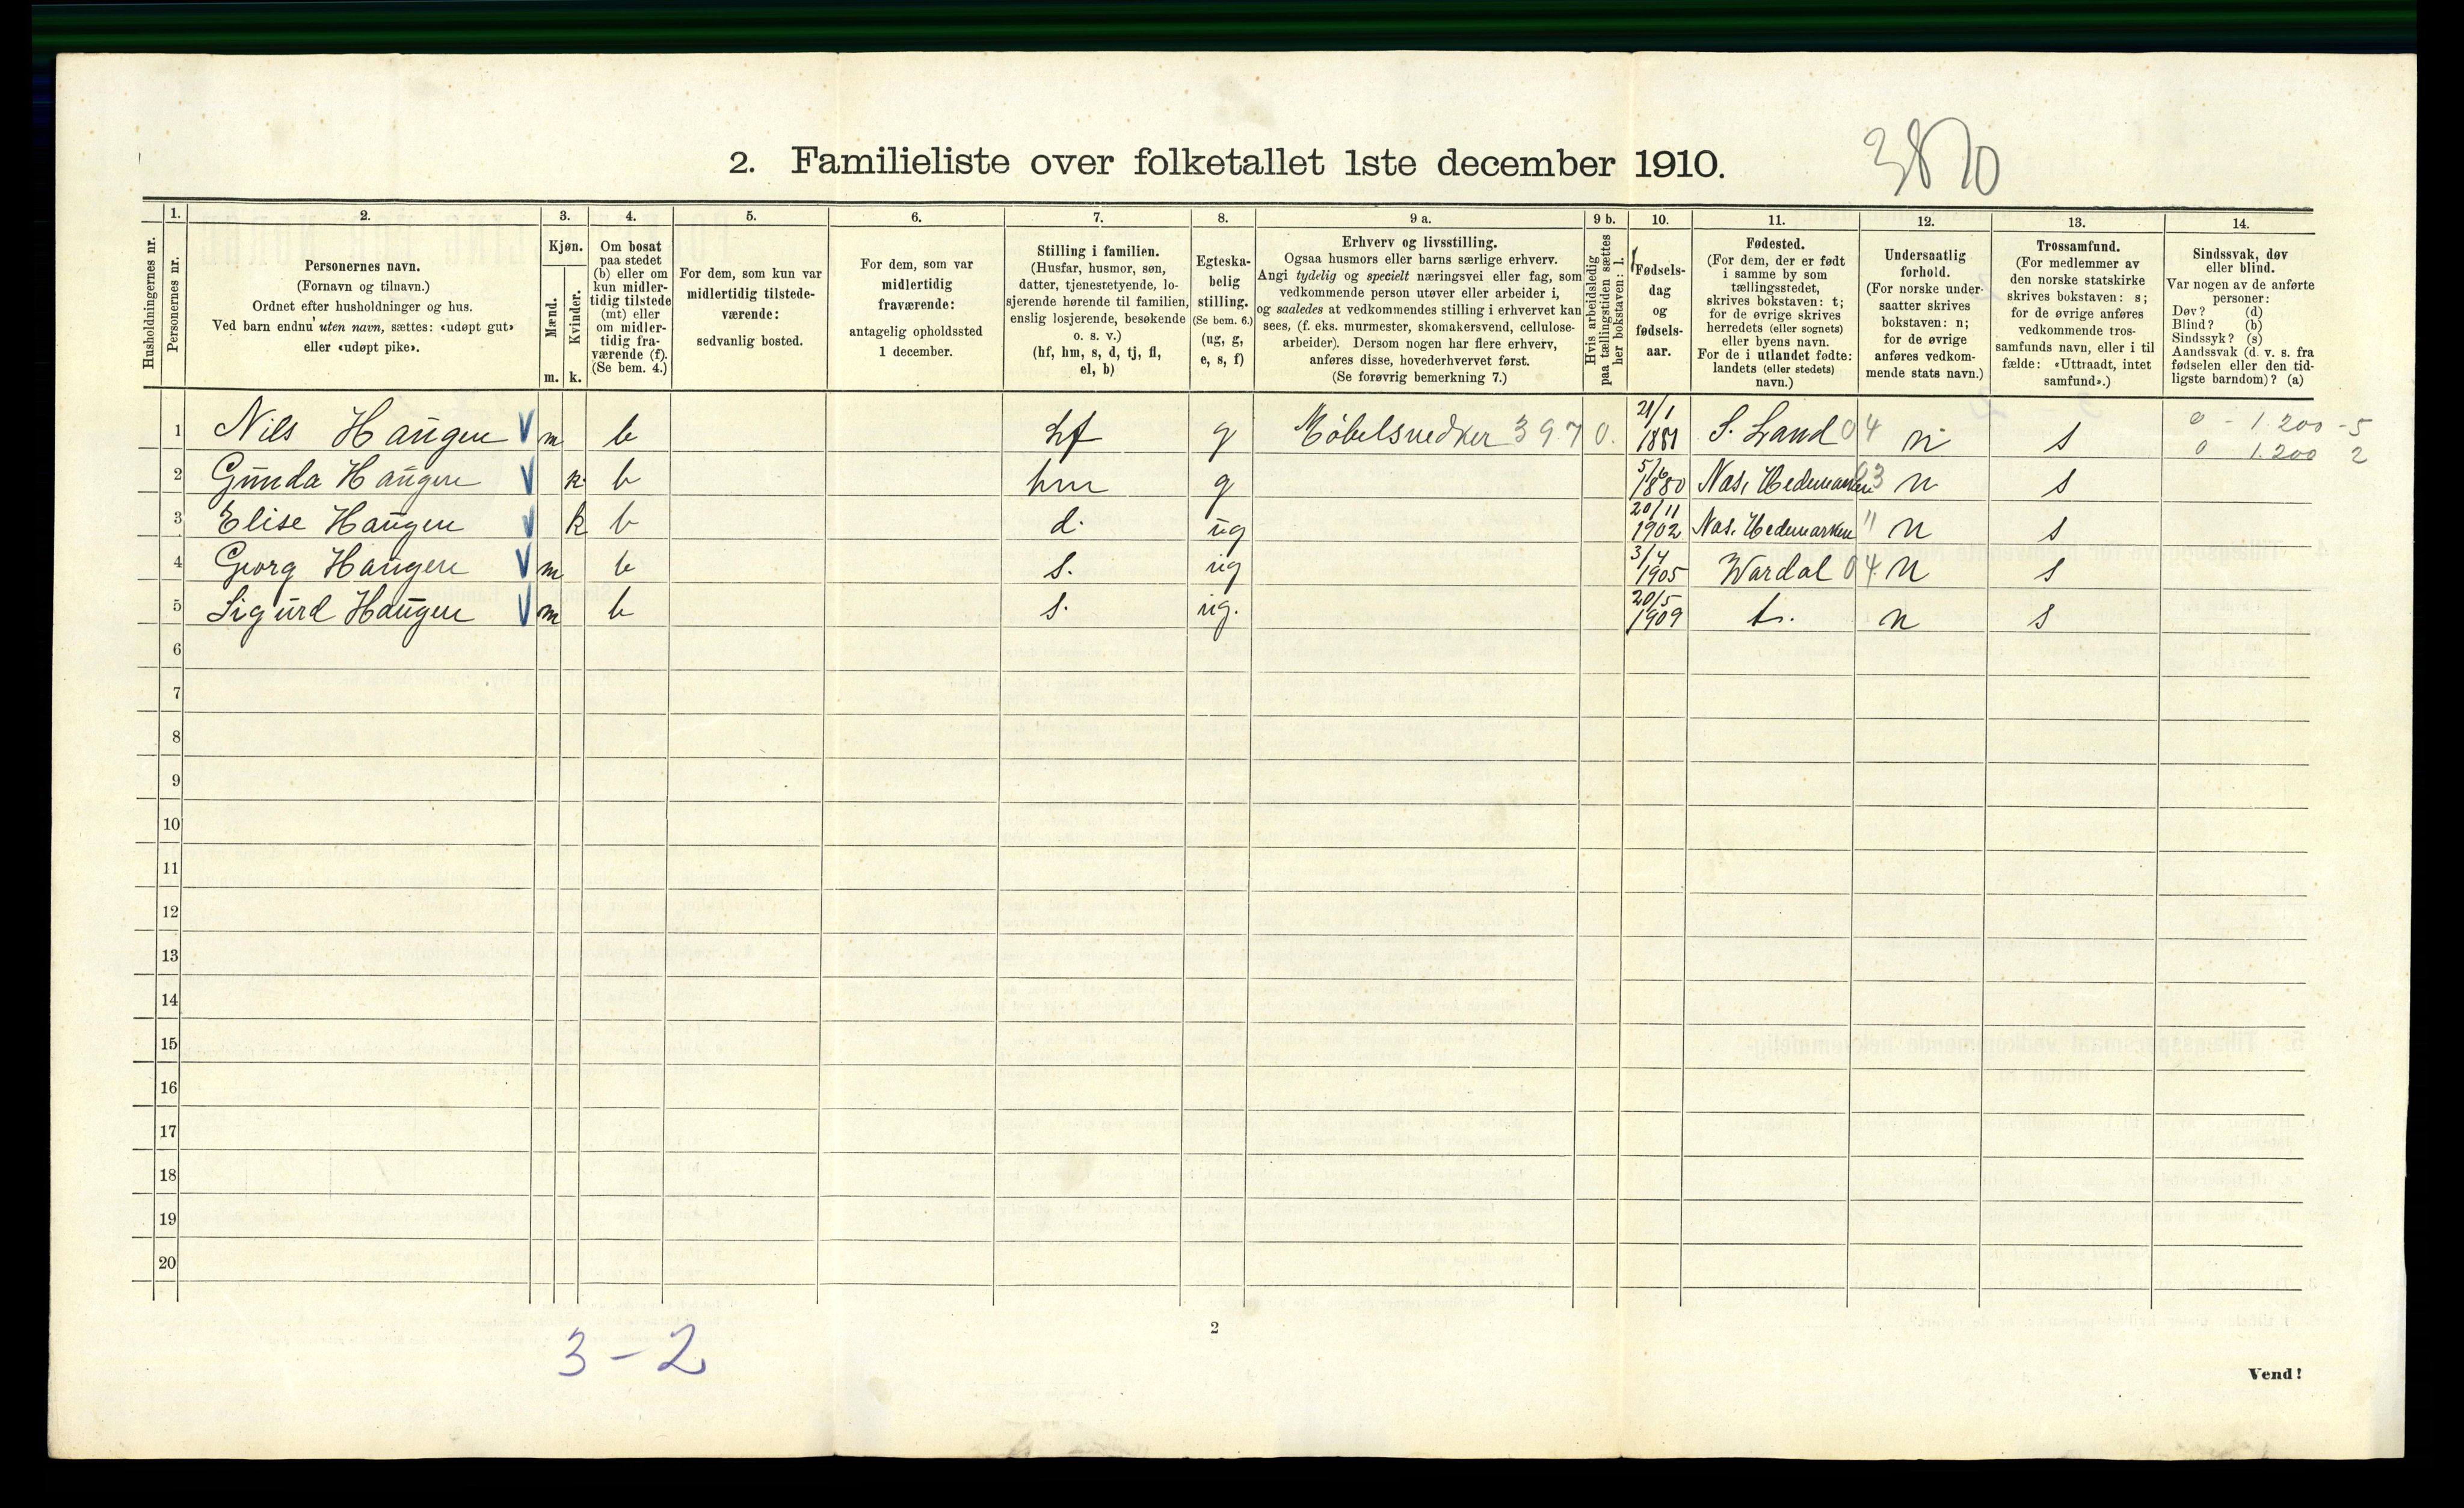 2. Familieliste over folketallet 1ste december 1910.
3870
Husholdningernes nr.
1.
Personernes nr.
2.
Personernes navn.
(Fornavn og tilnavn.)
Ordnet efter husholdninger og hus.
Ved barn endnu uten navn, sættes: «udøpt gut»
eller «udøpt pike».
3.
Kjøn.
Mænd.
m.
Kvinder.
k.
4.
Om bosat
paa stedet
(b) eller om
kun midler-
tidig tilstede
(mt) eller
om midler-
tidig fra-
værende (f).
(Se bem. 4.)
5.
For dem, som kun var
midlertidig tilstede-
værende:
sedvanlig bosted.
6.
For dem, som var
midlertidig
fraværende:
antagelig opholdssted
1 december.
7.
Stilling i familien.
(Husfar, husmor, søn,
datter, tjenestetyende, lo-
sjerende hørende til familien,
enslig losjerende, besøkende
o. s. v.)
(hf, hm, s, d, tj, fl,
el, b)
8.
Egteska-
belig
stilling.
(Se bem. 6.)
(ug, g,
e, s, f)
9 a.
Erhverv og livsstilling.
Ogsaa husmors eller barns særlige erhverv.
Angi tydelig og specielt næringsvei eller fag, som
vedkommende person utøver eller arbeider i,
og saaledes at vedkommendes stilling i erhvervet kan
sees, (f. eks. murmester, skomakersvend, cellulose-
arbeider). Dersom nogen har flere erhverv,
anføres disse, hovederhvervet først.
(Se forøvrig bemerkning 7.)
9 b.
Hvis arbeidsledig
paa tællingstiden sættes
her bokstaven: l.
10.
Fødsels-
dag
og
fødsels-
aar.
11.
Fødested.
(For dem, der er født
i samme by som
tællingsstedet,
skrives bokstaven: t;
for de øvrige skrives
herredets (eller sognets)
eller byens navn.
For de i utlandet fødte:
landets (eller stedets)
navn.)
12.
Undersaatlig
forhold.
(For norske under-
saatter skrives
bokstaven: n;
for de øvrige
anføres vedkom-
mende stats navn.)
13.
Trossamfund.
(For medlemmer av
den norske statskirke
skrives bokstaven: s;
for de øvrige anføres
vedkommende tros-
samfunds navn, eller i til
fælde: «Uttraadt, intet
samfund».)
14.
Sindssvak, døv
eller blind.
Var nogen av de anførte
personer:
Døv? (d)
Blind? (b)
Sindssyk? (s)
Aandssvak (d. v. s. fra
fødselen eller den tid-
ligste barndom)? (a)
1 Nils Haugen V m b hf g Møbelsnedker 397 0. 21/1 1881 S. Land 04 n s 0 - 1.200 - 5
0 1.200 2
2 Gunda Haugen V k b hm g 5/6 1880 Nas, Hedemarken 03 n s
3 Elise Haugen V k b d. ug 20/11 1902 Nas, Hedemarken " n s
4 Georg Haugen V m b s. ug 3/4 1905 Wardal 04. n s
5 Sigurd Haugen V m b s. ug. 20/5 1909 t. n s
6
7
8
9
10
11
12
13
14
15
16
17
18
19
20
3-2
2
Vend!